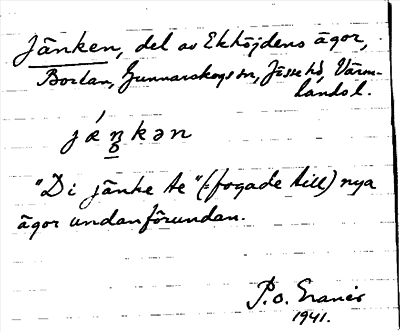 Jänken, del av Ekhöjdens ägor,
Bortan, Gunnarskogs sn, Jösse hd, Värm-
lands l.
jä́n̥kən
"Di jänke te" (= fogade till) nya
ägor undanförundan.
P. O.
1941.